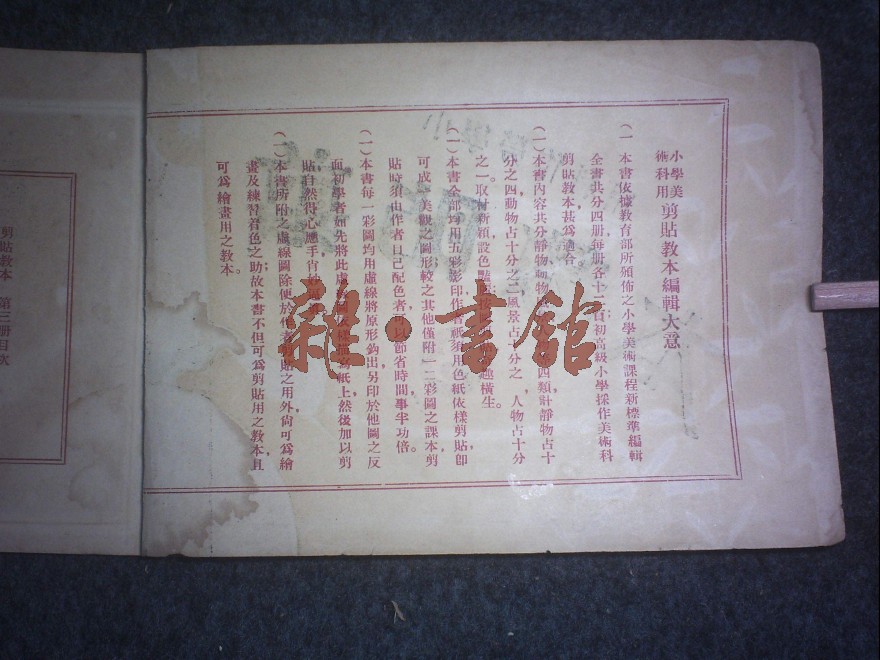 小學美術科用 剪貼教本編輯大意
(一 本書依據教育部所頒佈之小學美術課程新標準編輯
全書共分四册每册各十二頁初高級小學採作美術科
剪貼教本甚爲適合
(一)本書內容共分靜物動物四類計靜物占十
分之四動物占十分之二風景占十分之一,人物占十分
之一。取材新穎設色豔越橫生。
(一)本書全部均用五彩影印作者祇須用色紙依樣剪貼卽
可成一美觀之圖形較之其他僅附一二彩圖之課本,剪
貼時須由作者自己配色者可以節省時間,事半功倍。
(一)本書每一彩圖均用虛線將原形鈎出另印於他圖之反
面初學者如先將此虛線圖描寫紙上然後加以剪
貼自然得心應手肖妙
(一)本書所附之虛線圖除便於作者剪貼之用外,尙可爲繪
畫及練習着色之助故本書不但可爲剪貼用之教本,且
可爲繪畫用之教本。
剪貼教本 第三册目次
雜·書館